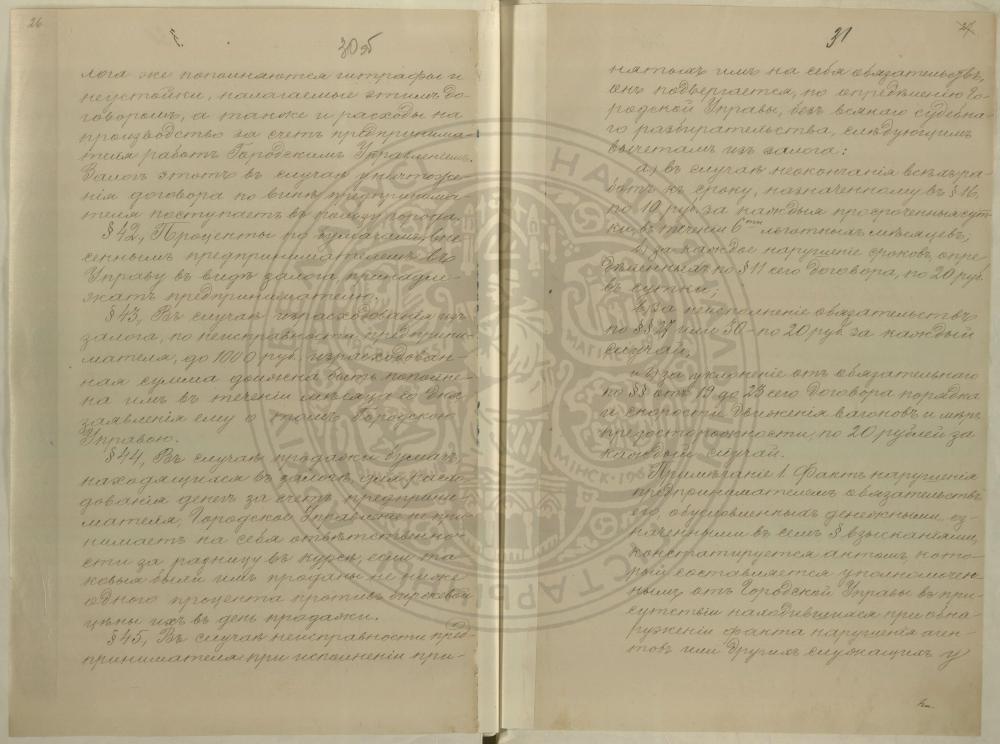 26
30об
лога же пополняются штрафы и
неустойки, налагаемые этимъ до-
говоромъ, а также и расходы на
производство за счетъ предпринима-
теля работъ Городскимъ Управленiемъ.
Залогъ этотъ въ случаѣ уничтоже-
нiя договора по винѣ предпринима-
теля поступаетъ въ пользу города.
§ 42, Проценты по бумагамъ, вне-
сеннымъ предпринимателемъ въ
Управу въ видѣ залога, принадле-
жатъ предпринимателю.
§ 43, Въ случаѣ израсходованiя изъ
залога, по неисправности предприни-
мателя, до 1000 руб. израсходован-
ная сумма должна быть пополне-
на имъ въ теченiи мѣсяца со дня
заявленiя ему о томъ Городскою
Управою.
§ 44, Въ случаѣ продажи бумагъ,
находящихся въ залогѣ, для расхо-
дованiя денегъ за счетъ предприни-
мателя, Городское Управленiе не при-
нимаетъ на себя отвѣтственно-
сти за разницу въ курсѣ, если та-
ковыя были имъ проданы не ниже
одного процента противъ биржевой
цѣны ихъ въ день продажи.
§ 45, Въ случаѣ неисправности пред-
принимателя при исполненiи при-
31
нятыхъ имъ на себя обязательствъ,
онъ подвергается, по опредѣленiю Го-
родской Управы, безъ всякаго судебна-
го разбирательства, слѣдующимъ
вычетамъ изъ залога:
а) въ случаѣ неокончанiя всѣхъ ра-
ботъ къ сроку, назначенному въ § 16,
по 10 руб. за каждыя просроченныя сут-
ки, въ теченiи 6ти льготныхъ мѣсяцевъ;
б) за каждое нарушенiе сроковъ, опре-
дѣленныхъ по § 11 сего договора, по 20 руб.
въ сутки;
в) за неисполненiе обязательствъ
по §§ 27 или 30 - по 20 руб. за каждый
случай,
и г) за уклоненiе отъ обязательнаго
по §§ отъ 19 до 23 сего договора порядка
и скорости движенiя вагоновъ и мѣръ
предосторожности, по 20 рублей за
каждый случай.
Примѣчанiе 1. Фактъ нарушенiя
предпринимателемъ обязательствъ
его, обусловленныхъ денежными, оз-
наченными въ семъ § взысканiями,
констратируется актомъ, кото-
рый составляется уполномочен-
нымъ отъ Городской Управы въ при-
сутствiи находившихся при обна-
руженiи факта нарушенiя аген-
товъ или другихъ служащихъ у